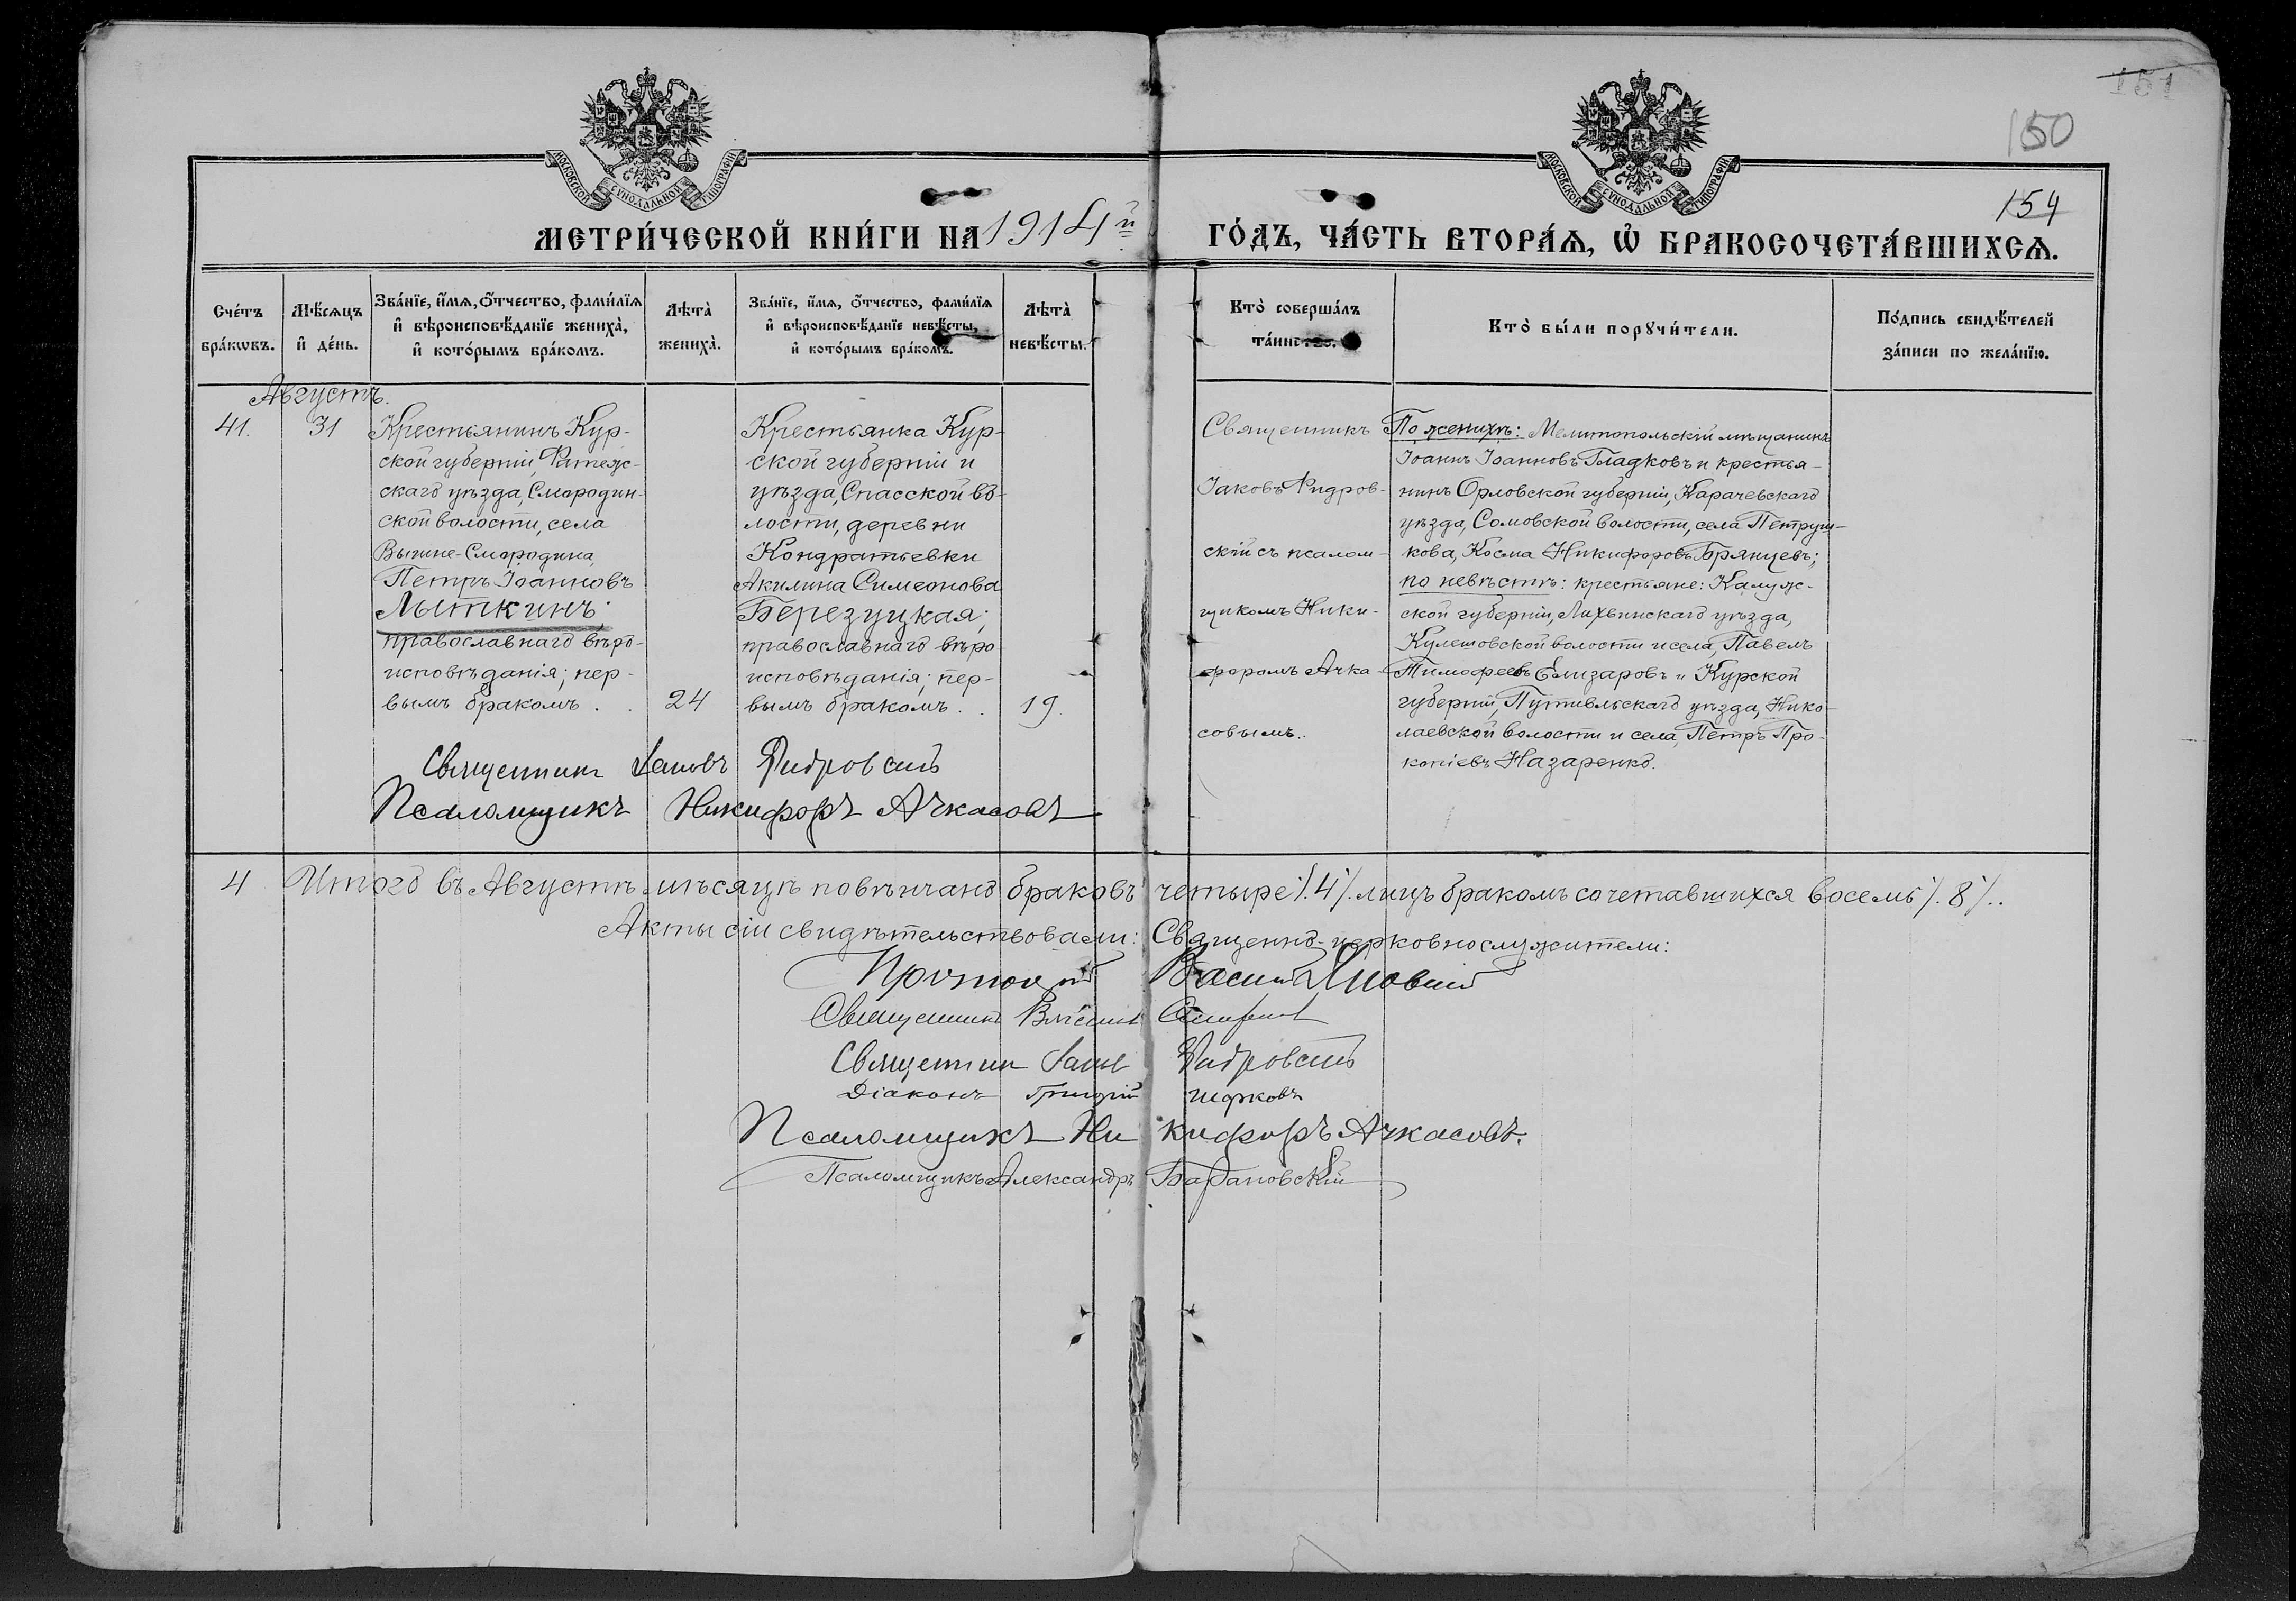 151
150
154
МОСКОВСКОЙ СѴНОДАЛЬНОЙ ТИПОГРАФІИ
МОСКОВСКОЙ СѴНОДАЛЬНОЙ ТИПОГРАФІИ
МЕТРИ́ЧЕСКОЙ КНИ́ГИ НА 1914й
ГО́ДЪ, ЧА́СТЬ ВТОРА́Ѧ, Ѡ҆ БРАКОСОЧЕТА́ВШИХСѦ.
Сче́тъ бра́кѡвъ.
Мѣ́сѧцъ и҆ де́нь.
Зва́нїе, и҆́мѧ, ѻ҆́тчество, фами́лїѧ и҆ вѣроисповѣ́данїе жениха̀, и҆ кото́рымъ бра́комъ.
Лѣта̀ жениха̀.
Зва́нїе, и҆́мѧ, ѻ҆́тчество, фами́лїѧ и҆ вѣроисповѣ́данїе невѣ́сты, и҆ кото́рымъ бра́комъ.
Лѣта̀ невѣ́сты.
Кто̀ соверша́лъ та́инство.
Кто̀ бы́ли порꙋчи́тели.
По́дпись свидѣ́телей за́писи по жела́нїю.
Августъ.
41.
31
Крестьянинъ Кур-
ской губерніи, Фатеж-
скаго уѣзда, Смородин-
ской волости, села
Смородина,
Петръ Іоанновъ
Лыткинъ;
православнаго вѣро-
исповѣданія; пер-
вымъ бракомъ . .
24
Крестьянка Кур-
ской губерніи и
уѣзда, Спасской во-
лости, деревни
Кондратьевки
Акилина Симеонова
Березуцкая;
православнаго вѣро
исповѣданія; пер-
вымъ бракомъ . .
19.
Священникъ
Іаковъ Фидров-
скій съ псалом-
щикомъ Ники-
форомъ Ачка-
совымъ..
По женихѣ: Мелитопольскій мѣщанинъ
Іоаннъ Іоанновъ Гладковъ и крестья-
нинъ Орловской губерніи, Карачевскаго
уѣзда, Сомовской волости, села Петруш-
кова, Косма Никифоровъ Брянцевъ;
по невѣстѣ: крестьяне: Калуж-
ской губерніи, Лихвинскаго уѣзда,
Кулешовской волости и села, Павелъ
Тимофеевъ Елизаровъ и Курской
губерніи, Путивльскаго уѣзда, Нико-
лаевской волости и села, Петръ Про-
копіевъ Назаренко.
Священникъ Іаковъ Фидровскій
Псаломщикъ Никифоръ Ачкасовъ
4 Итого въ Августѣ мѣсяцѣ повѣнчано браковъ четыре /.4/. лицъ бракомъ сочетавшихся восемь /.8/..
Акты сіи свидѣтельствовали: Священно-церковнослужители:
Протоіерей Василій
Священникъ
Священникъ Іаковъ Фидровскій
Діаконъ Григорій
Псаломщикъ Никифоръ Ачкасовъ.
Псаломщикъ Александръ Барановскій